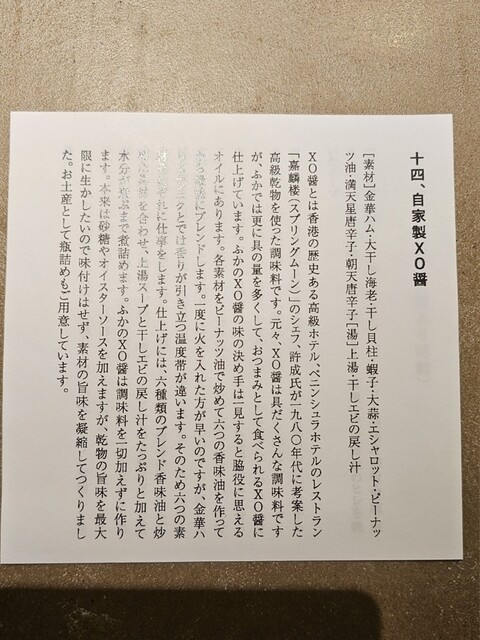 十四、自家製XO醤
[素材]金華ハム・大干し海老・干し貝柱・蝦子・大蒜・エシャロット・ピーナッ
ツ油・満天星唐辛子・朝天唐辛子[湯]上湯・干しエビの戻し汁
XO醤とは香港の歴史ある高級ホテル、ペニンシュラホテルのレストラン
「嘉麟楼(スプリングムーン)」のシェフ、許成氏が一九八〇年代に考案した
高級乾物を使った調味料です。元々、XO醤は具だくさんな調味料です
が、ふかでは更に具の量を多くして、おつまみとして食べられるXO醤に
仕上げています。ふかのXO醤の味の決め手は一見すると脇役に思える
オイルにあります。各素材をピーナッツ油で炒めて六つの香味油を作って
にブレンドします。一度に火を入れた方が早いのですが、金華ハ
とでは香りが引き立つ温度帯が違います。そのため六つの素
ぞれに仕事をします。仕上げには、六種類のブレンド香味油と炒
を合わせ、上湯スープと干しエビの戻し汁をたっぷりと加えて
水分が まで煮詰めます。ふかのXO醤は調味料を一切加えずに作り
ます。本来は砂糖やオイスターソースを加えますが、乾物の旨味を最大
限に生かしたいので味付けはせず、素材の旨味を凝縮してつくりまし
た。お土産として瓶詰めもご用意しています。